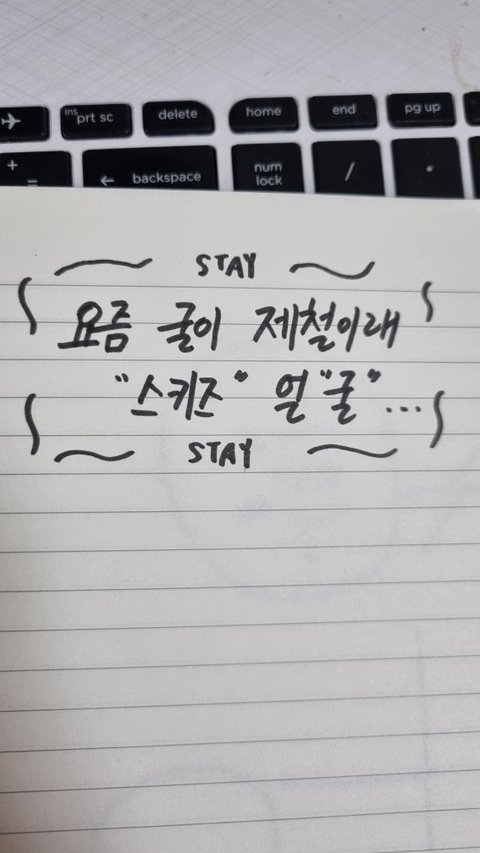 ins
prt sc
delete
home
end
pg up
+
=
← backspace
num
lock
/
*
STAY
요즘 굴이 제철이래
"스키즈" 얼"굴"...
STAY